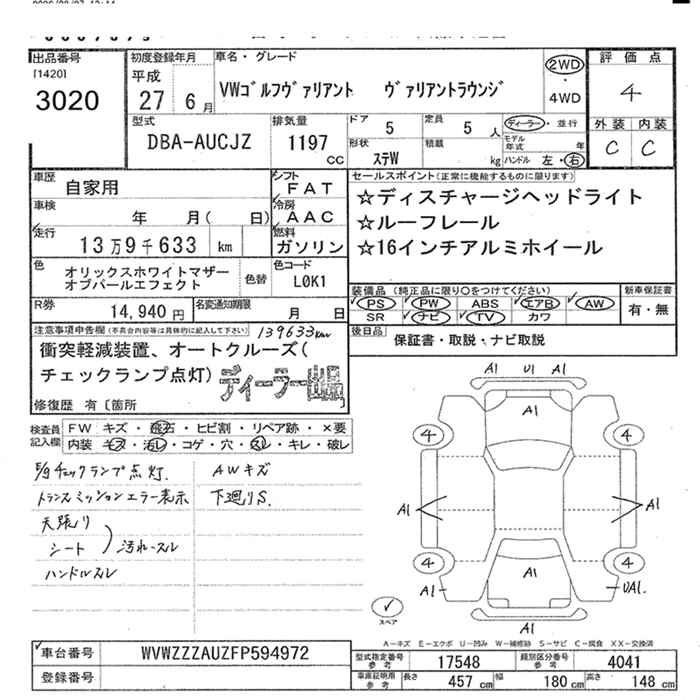 出品番号
[1420]
3020
初度登録年月
平成
27 6月
車名・グレード
VWゴルフヴァリアント ヴァリアントラウンジ
2WD
・
4WD
評価点
4
外装 内装
C C
型式
DBA-AUCJZ
排気量
1197
CC
ドア 5
定員 5 人
形状 ステW
積載 kg
ディーラー・並行
モデル年式 年
ハンドル 左・右
車歴
自家用
シフト
FAT
車検
年 月( 日)
冷房
AAC
走行
13万9千633 km
燃料
ガソリン
色
オリックスホワイトマザー
オブパールエフェクト
色替
色コード
L0K1
R券
14,940 円
名変通知期限
月 日
セールスポイント(正常に機能するものに限ります)
☆ディスチャージヘッドライト
☆ルーフレール
☆16インチアルミホイール
装備品(純正品に限り〇をつけてください)
PS PW ABS エアB AW
SR ナビ TV カワ
新車保証書
有・無
後日品
保証書・取説・ナビ取説
注意事項申告欄(不具合内容等は具体的に記入して下さい)
139633km
衝突軽減装置、オートクルーズ(
チェックランプ点灯)
ディーラー出品
修復歴 有〔箇所 〕
検査員
記入欄
FW キズ・飛石・ヒビ割・リペア跡・×要
内装 キズ・汚レ・コゲ・穴・スレ・キレ・破レ
チェックランプ点灯.
トランスミッションエラー表示
天張り
シート
汚れ・スル
ハンドルスレ
AWキズ
下廻りS.
A1 U1 A1
A1
4 4
A1 A1
4 4
A1
A1 UA1.
A1
スペア
A−キズ E−エクボ U−凹み W−補修跡 S−サビ C−腐食 XX−交換済
車台番号
WVWZZZAUZFP594972
登録番号
型式指定番号
参考
17548
類別区分番号
参考
4041
車庫証明用
参考
長さ 457 cm
幅 180 cm
高さ 148 cm